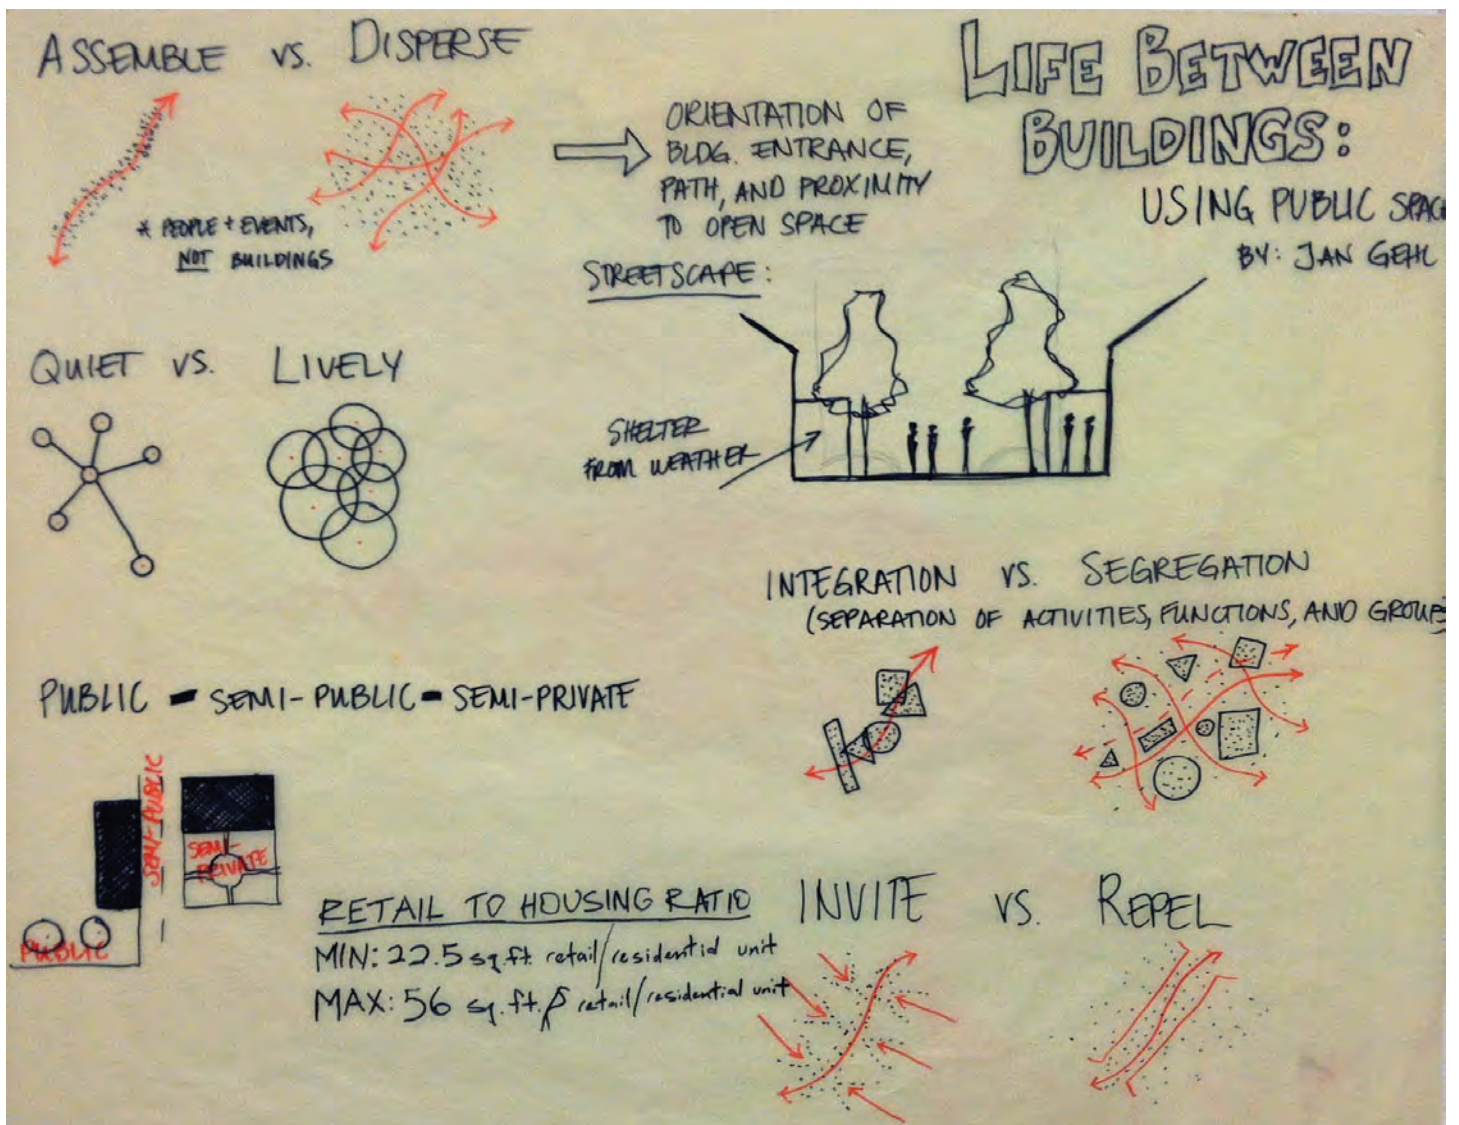 ASSEMBLE vs. DISPERSE
* PEOPLE + EVENTS,
NOT BUILDINGS
ORIENTATION OF
BLDG. ENTRANCE,
PATH, AND PROXIMITY
TO OPEN SPACE
LIFE BETWEEN
BUILDINGS:
USING PUBLIC SPAC
BY: JAN GEHL
STREETSCAPE:
SHELTER
FROM WEATHER
QUIET vs. LIVELY
INTEGRATION vs. SEGREGATION
(SEPARATION OF ACTIVITIES, FUNCTIONS, AND GROUPS
PUBLIC - SEMI-PUBLIC - SEMI-PRIVATE
SEMI-PUBLIC
SEMI-
PRIVATE
PUBLIC
RETAIL TO HOUSING RATIO
MIN: 22.5 sq.ft. retail/residential unit
MAX: 56 sq.ft. retail/residential unit
INVITE vs. REPEL